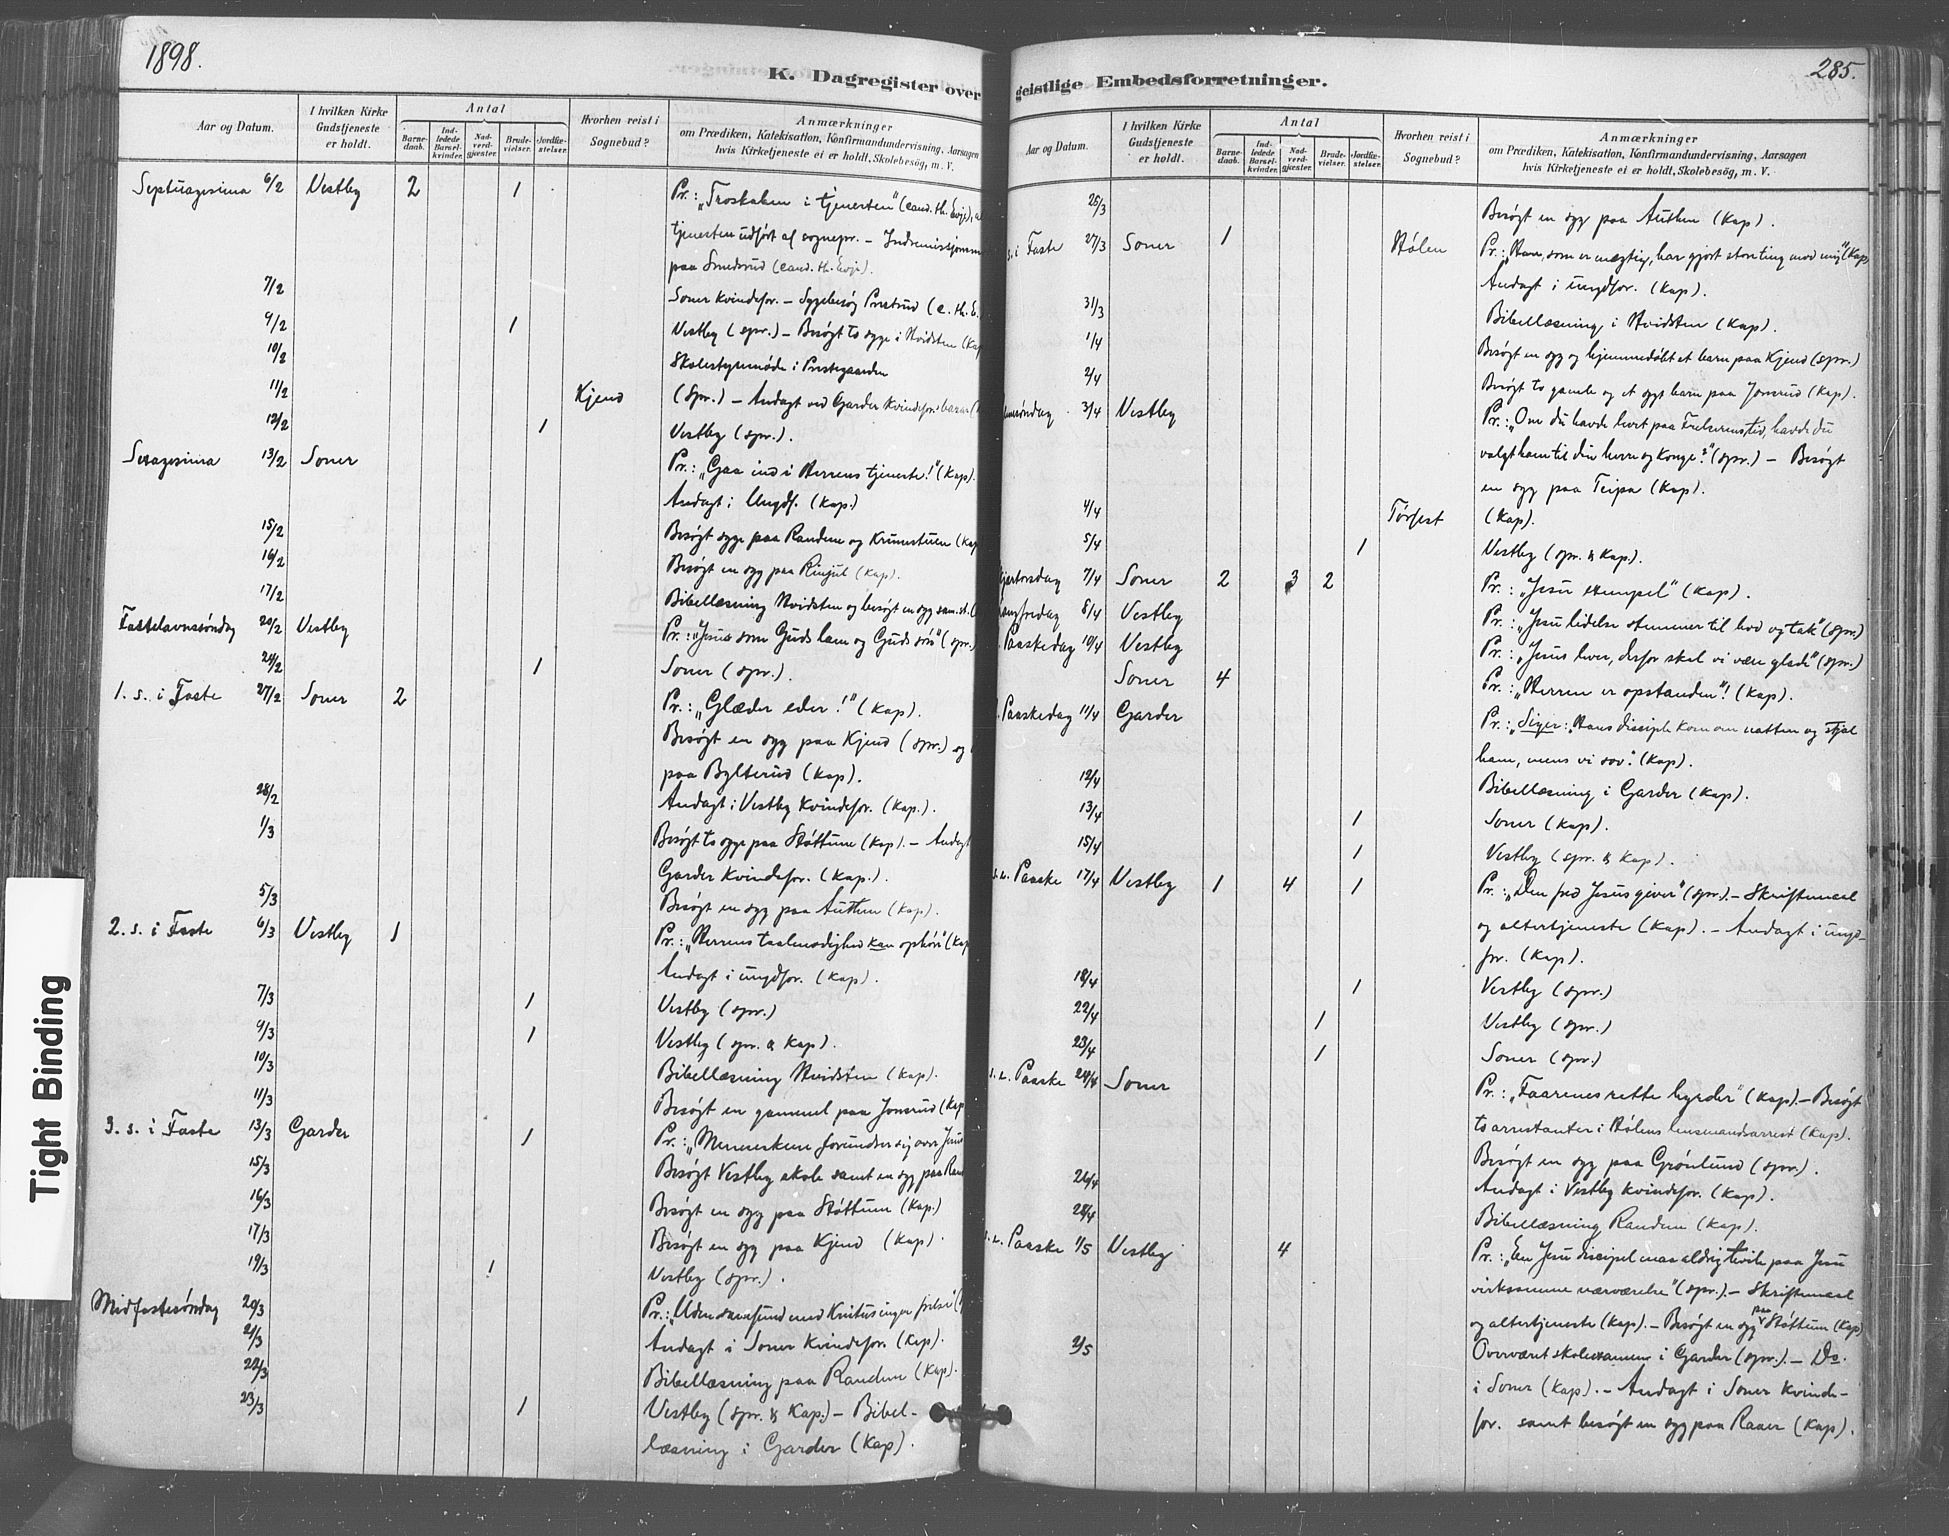 1898.
K. Dagregister over
Aar og Datum. I hvilken Kirke Gudstjeneste er holdt. Antal Barnedaab. Indledede Barselkvinder. Nadverdgjæster. Brudevielser. Jordfæstelser. Hvorhen reist i Sognebud? Anmærkninger om Prædiken, Katekisation, Konfirmandundervisning, Aarsagen hvis Kirketjeneste ei er holdt, Skolebesøg, m. V.
Septuagesima 6/2 Vestby 2 1 Pr.: „Troskaben i tjenesten" (cand. th. Evje),
tjenesten udført af sognepr. – Indremissionsm
paa Smedsrud (cand. th. Evje).
7/2 Soner Kvindefor. – Sygebesøg Prestrud (c. th. E.)
9/2 1 Vestby (spr.) – Besøgt to syge i Hvidsten (Kap
10/2 Skolestyremøde i Prestegaarden
11/2 Kjend (Spr.) – Andagt ved Garder Kvindefor.s basar
12/2 1 Vestby (spr.).
Sexagesima 13/2 Soner Pr.: „Gaa ind i Herrens tjeneste!" (Kap).
Andagt i Ungdf. (Kap.)
15/2 Besøgt syge paa Randem og Krumstuen (Kap
16/2 Besøgt en syg paa Rinjul (Kap).
17/2 Bibellæsning Hvidsten og besøgt en syg sam. st.
Fastelavnssøndag 20/2 Vestby Pr.: „Jesus som Guds lam og Guds søn" (spr.)
24/2 1 Soner (spr.).
1. s. i Faste 27/2 Soner 2 Pr.: „Glæder eder!" (Kap).
Besøgt en syg paa Kjend (spr.) og
paa Bylterud (Kap).
28/2 Andagt i Vestby Kvindefor. (Kap.).
1/3 Besøgt to syge paa Støttum (Kap). – Andagt
Garder Kvindefor. (Kap.).
5/3 Besøgt en syg paa Authen (Kap).
2. s. i Faste 6/3 Vestby 1 Pr.: „Herrens taalmodighed kan ophøre" (Kap
Andagt i ungdfor. (Kap).
7/3 1 Vestby (spr.)
9/3 1 Vestby (spr. & Kap).
10/3 Bibellæsning Hvidsten (Kap).
11/3 Besøgt en gammel paa Jonsrud (Kap
3. s. i Faste 13/3 Garder 1 Pr.: „Menneskene forundrer sig over Jesus
15/3 Besøgt Vestby skole samt en syg paa Ran
16/3 Besøgt en syg paa Støttum (Kap)
17/3 Besøgt en syg paa Kjend (Kap).
19/3 1 Vestby (spr.).
Midfastesøndag 20/3 Pr.: „Uden samfund med Kristus ingen frelse"
21/3 Andagt i Soner Kvindefor. (Kap).
22/3 Bibellæsning paa Randem (Kap).
23/3 1 Vestby (spr. & Kap.) – Bibel-
læsning i Garder (Kap).
geistlige Embedsforretninger.
285.
Aar og Datum. I hvilken Kirke Gudstjeneste er holdt. Antal Barnedaab. Indledede Barselkvinder. Nadverdgjæster. Brudevielser. Jordfæstelser. Hvorhen reist i Sognebud? Anmærkninger om Prædiken, Katekisation, Konfirmandundervisning, Aarsagen hvis Kirketjeneste ei er holdt, Skolebesøg, m. V.
25/3 Besøgt en syg paa Authen (Kap).
s. i Faste 27/3 Soner 1 Hølen Pr.: „Han, som er mægtig, har gjort store ting mod mig" (Kap)
Andagt i ungdfor. (Kap).
31/3 Bibellæsning i Hvidsten (Kap).
1/4 Besøgt en syg og hjemmedøbt et barn paa Kjend (spr.)
2/4 Besøgt to gamle og et sygt barn paa Jonsrud (Kap).
søndag 3/4 Vestby Pr.: „Om du havde levet paa Frelserens tid, havde du
valgt ham til din herre og konge?" (spr.) – Besøgt
en syg paa Teipa (Kap).
4/4 Tørfest (Kap).
5/4 1 Vestby (spr. & Kap.).
kjærtorsdag 7/4 Soner 2 3 2 Pr.: „Jesu exempel" (Kap).
angfredag 8/4 Vestby Pr.: „Jesu lidelse stemmer til lov og tak" (spr.)
Paaskedag 10/4 Vestby Pr.: „Jesus lever, derfor skal vi være glade" (spr.)
Soner 4 Pr.: „Herren er opstanden"! (Kap).
. Paaskedag 11/4 Garder Pr.: „Siger: Hans disciple kom om natten og stjal
ham, mens vi sov." (Kap).
12/4 Bibellæsning i Garder (Kap).
13/4 1 Soner (Kap).
15/4 1 Vestby (spr. & Kap).
s. e. Paaske 17/4 Vestby 1 4 1 Pr.: „Den fred Jesus giver" (spr.). – Skriftemaal
og altertjeneste (Kap). – Andagt i ungd-
for. (Kap).
18/4 1 Vestby (spr.)
22/4 1 Vestby (spr.)
23/4 1 Soner (spr.)
s. e. Paaske 24/4 Soner Pr.: „Faarenes rette hyrde" (Kap). – Besøgt
to arrestanter i Hølens lensmandsarrest (Kap).
Besøgt en syg paa Grønlund (spr.).
26/4 Andagt i Vestby Kvindefor. (Kap).
28/4 Bibellæsning Randem (Kap).
s. e. Paaske 1/5 Vestby 4 Pr.: „En Jesu discipel maa aldrig tvile paa Jesu
virksomme nærværelse" (spr.). – Skriftemaal
og altertjeneste (Kap). – Besøgt en syg paa Støttum (Kap)
2/5 Overværet skoleexamen i Garder (spr.). – Do.
i Soner (Kap). – Andagt i Soner Kvinde-
for. samt besøgt en syg paa Raaer (Kap).
Tight Binding